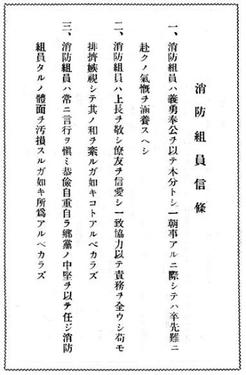 消防組員信條
一、消防組員ハ義勇奉公ヲ以テ本分トシ一朝事アルニ際シテハ卒先難ニ
赴クノ氣慨ヲ涵養スヘシ
二、消防組員ハ上長ヲ敬シ僚友ヲ信愛シ一致協力以テ責務ヲ全ウシ苟モ
排擠嫉視シテ其ノ和ヲ紊ルガ如キコトアルベカラズ
三、消防組員ハ常ニ言行ヲ愼ミ恭儉自重自ラ鄕黨ノ中堅ヲ以テ任ジ消防
組員タルノ體面ヲ汚損スルガ如キ所爲アルベカラズ